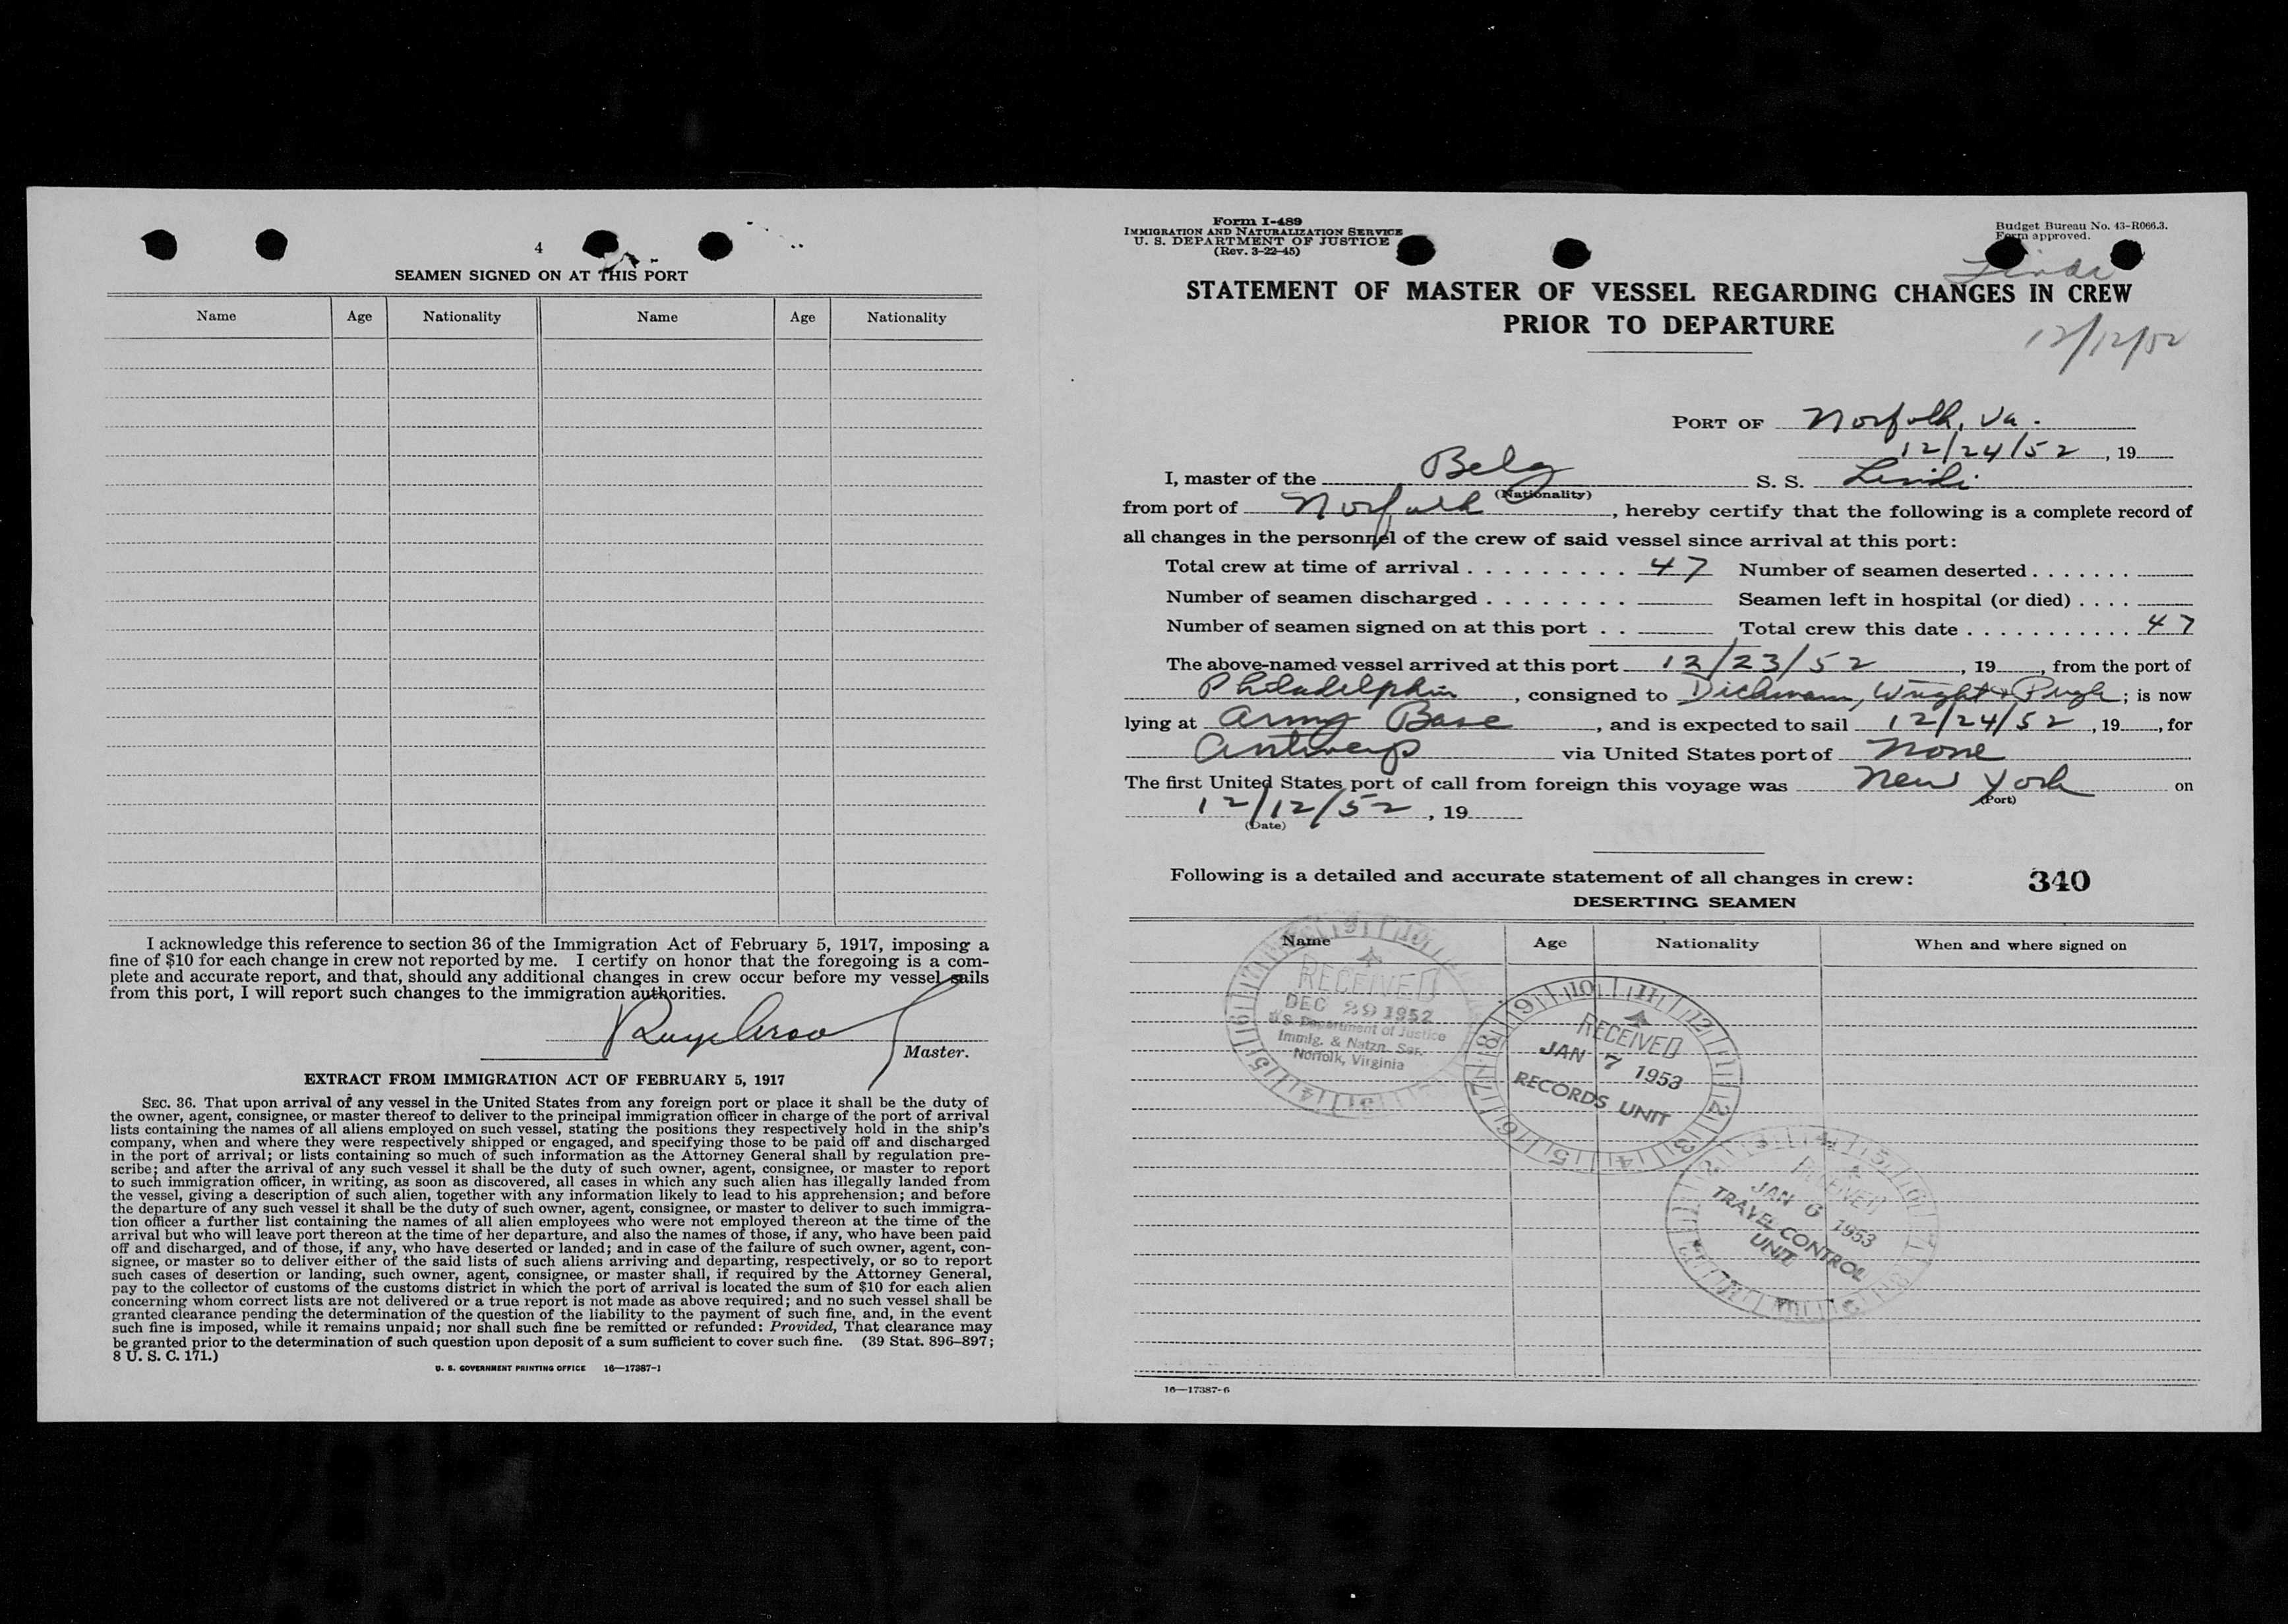 4
SEAMEN SIGNED ON AT THIS PORT
Name Age Nationality Name Age Nationality
I acknowledge this reference to section 36 of the Immigration Act of February 5, 1917, imposing a
fine of $10 for each change in crew not reported by me. I certify on honor that the foregoing is a com-
plete and accurate report, and that, should any additional changes in crew occur before my vessel sails
from this port, I will report such changes to the immigration authorities.
Master.
EXTRACT FROM IMMIGRATION ACT OF FEBRUARY 5, 1917
SEC. 36. That upon arrival of any vessel in the United States from any foreign port or place it shall be the duty of
the owner, agent, consignee, or master thereof to deliver to the principal immigration officer in charge of the port of arrival
lists containing the names of all aliens employed on such vessel, stating the positions they respectively hold in the ship's
company, when and where they were respectively shipped or engaged, and specifying those to be paid off and discharged
in the port of arrival; or lists containing so much of such information as the Attorney General shall by regulation pre-
scribe; and after the arrival of any such vessel it shall be the duty of such owner, agent, consignee, or master to report
to such immigration officer, in writing, as soon as discovered, all cases in which any such alien has illegally landed from
the vessel, giving a description of such alien, together with any information likely to lead to his apprehension; and before
the departure of any such vessel it shall be the duty of such owner, agent, consignee, or master to deliver to such immigra-
tion officer a further list containing the names of all alien employees who were not employed thereon at the time of the
arrival but who will leave port thereon at the time of her departure, and also the names of those, if any, who have been paid
off and discharged, and of those, if any, who have deserted or landed; and in case of the failure of such owner, agent, con-
signee, or master so to deliver either of the said lists of such aliens arriving and departing, respectively, or so to report
such cases of desertion or landing, such owner, agent, consignee, or master shall, if required by the Attorney General,
pay to the collector of customs of the customs district in which the port of arrival is located the sum of $10 for each alien
concerning whom correct lists are not delivered or a true report is not made as above required; and no such vessel shall be
granted clearance pending the determination of the question of the liability to the payment of such fine, and, in the event
such fine is imposed, while it remains unpaid; nor shall such fine be remitted or refunded: Provided, That clearance may
be granted prior to the determination of such question upon deposit of a sum sufficient to cover such fine. (39 Stat. 896–897;
8 U. S. C. 171.)
U. S. GOVERNMENT PRINTING OFFICE 16—17387-1
Form I-489
IMMIGRATION AND NATURALIZATION SERVICE
U. S. DEPARTMENT OF JUSTICE
(Rev. 3-22-45)
Budget Bureau No. 43-R066.3.
Form approved.
Lindi
STATEMENT OF MASTER OF VESSEL REGARDING CHANGES IN CREW
PRIOR TO DEPARTURE
12/12/52
PORT OF Norfolk, Va.
12/24/52, 19
I, master of the Belg S. S. Lindi
(Nationality)
from port of Norfolk, hereby certify that the following is a complete record of
all changes in the personnel of the crew of said vessel since arrival at this port:
Total crew at time of arrival . . . . . . . . . 47 Number of seamen deserted . . . . . . .
Number of seamen discharged . . . . . . . . Seamen left in hospital (or died) . . . .
Number of seamen signed on at this port . . Total crew this date . . . . . . . . . . . 47
The above-named vessel arrived at this port 12/23/52, 19, from the port of
Philadelphia, consigned to Dichmann, Wright & Pugh; is now
lying at Army Base, and is expected to sail 12/24/52, 19, for
Antwerp via United States port of None
The first United States port of call from foreign this voyage was New York on
(Port)
12/12/52, 19
(Date)
Following is a detailed and accurate statement of all changes in crew: 340
DESERTING SEAMEN
Name Age Nationality When and where signed on
RECEIVED
DEC 29 1952
U.S. Department of Justice
Immig. & Natzn. Ser.
Norfolk, Virginia
RECEIVED
JAN 7 1953
RECORDS UNIT
RECEIVED
JAN 6 1953
TRAVEL CONTROL
UNIT
16—17387-6